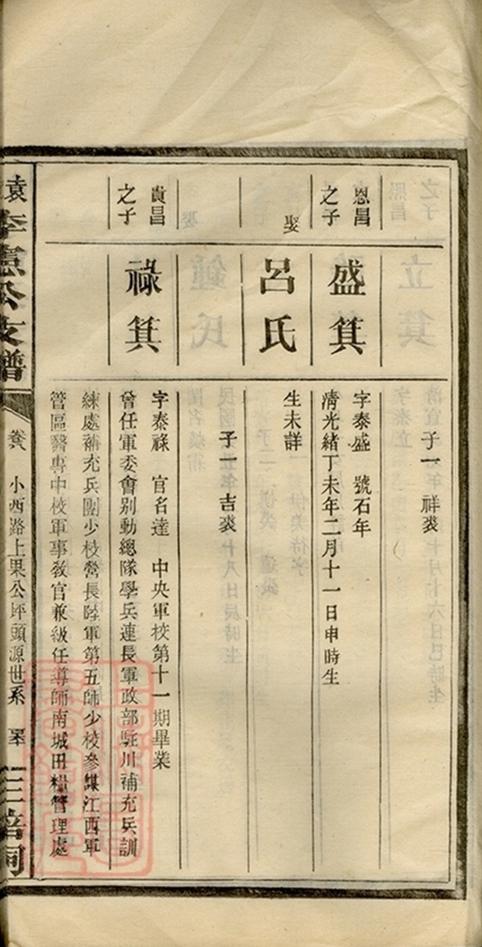 子一 祥裘
恩昌之子
盛箕
字泰盛 號石年
清光緒丁未年二月十一日申時生
娶
呂氏
生未詳
子一 吉裘
貴昌之子
祿箕
字泰祿 官名達 中央軍校第十一期畢業
曾任軍委會別動總隊學兵連長軍政部駐川補充兵訓
練處補充兵團少校營長陸軍第五師少校參謀江西軍
管區醫專中校軍事教官兼級任導師南城田糧管理處
袁李憲公支譜
卷八 小西路上果公坪頭源世系